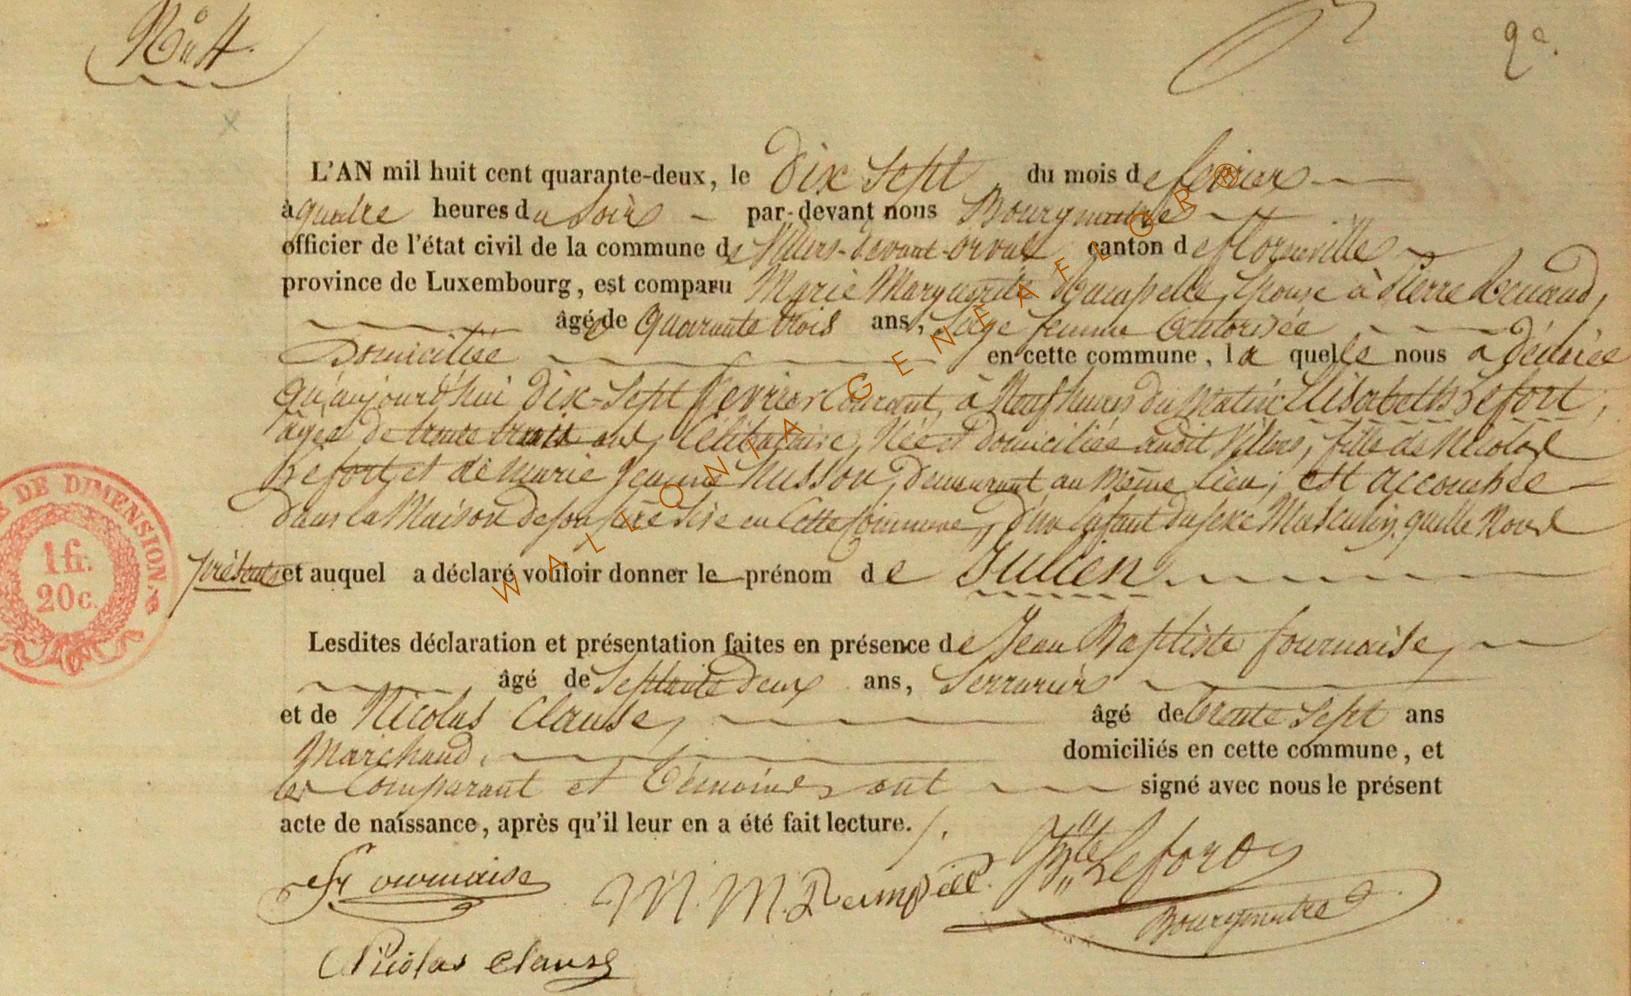 N° 4.
2e.
L'AN mil huit cent quarante-deux, le Dix Sept du mois de fevrier
à quatre heures du Soir par-devant nous Bourgmestre
officier de l'état civil de la commune de Villers-devant-orval canton de florenville
province de Luxembourg, est comparu Marie Marguerite Rampelle, Epouse à Pierre Renaud,
âgée de Quarante trois ans, Sage femme Autorisée
Domiciliée en cette commune, laquelle nous a Déclarée
qu'aujourd'hui Dix-Sept fevrier Courant, à Neuf heures du Matin Elisabeth Lefort,
âgée de trente ans, Célibataire, Née et domiciliée audit Villers, fille de Nicolas
Lefort et de Marie Jeanne Husson, demeurant au Même lieu, est accouchée
Dans la Maison de son père Sise en Cette Commune, D'un Enfant du sexe Masculin, qu'elle Nous
présente et auquel a déclaré vouloir donner le prénom de Julien
Lesdites déclaration et présentation faites en présence de Jean Baptiste fournaise,
âgé de Septante Deux ans, Serrurier
et de Nicolas Clausse, âgé de trente Sept ans
Marchand, domiciliés en cette commune, et
les Comparant et Témoins ont signé avec nous le présent
acte de naissance, après qu'il leur en a été fait lecture.
Fournaise M. M. Rampell. Lefort
Bourgmestre
Nicolas clause
DE DIMENSION.
1 fr.
20 c.
WALLONIA GENEAFLOR®